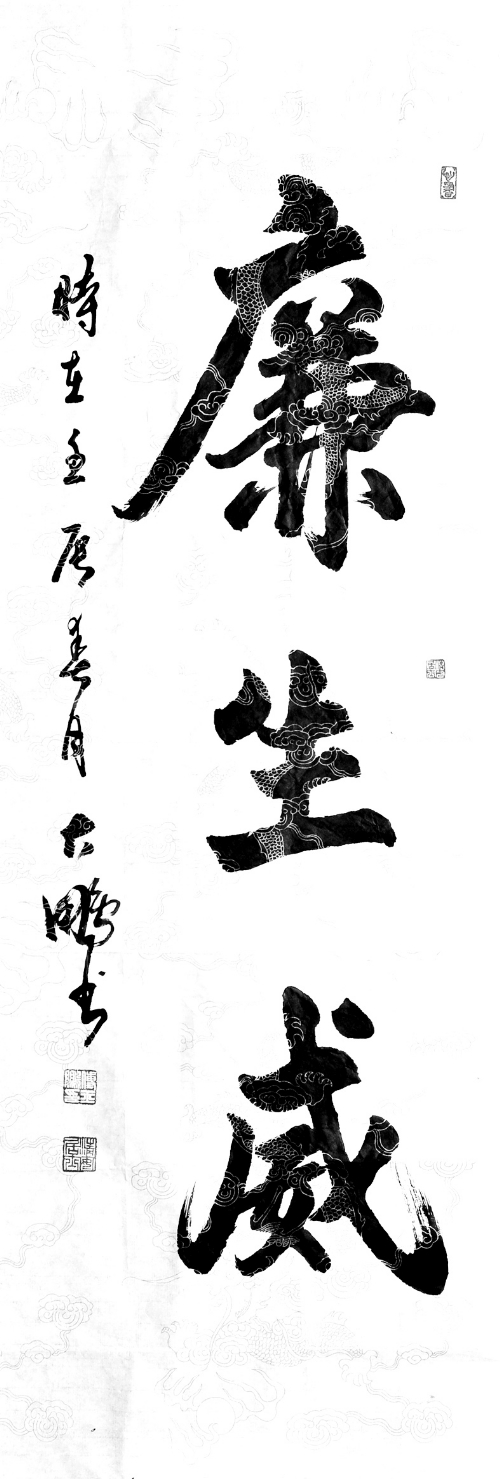 廉生威
時在壬辰春月大鹏书